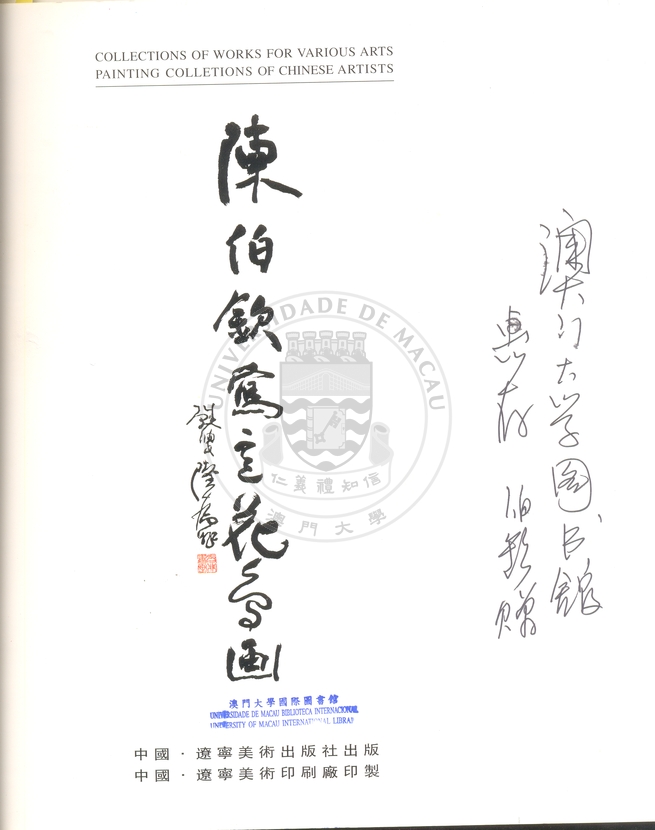 COLLECTIONS OF WORKS FOR VARIOUS ARTS
PAINTING COLLETIONS OF CHINESE ARTISTS
陳伯欽寫意花鸟画
澳门大学图书馆
惠存
伯钦赠
UNIVERSIDADE DE MACAU
仁義禮知信
澳門大學
澳門大學國際圖書館
UNIVERSIDADE DE MACAU BIBLIOTECA INTERNACIONAL
UNIVERSITY OF MACAU INTERNATIONAL LIBRAR
中國·遼寧美術出版社出版
中國·遼寧美術印刷廠印製